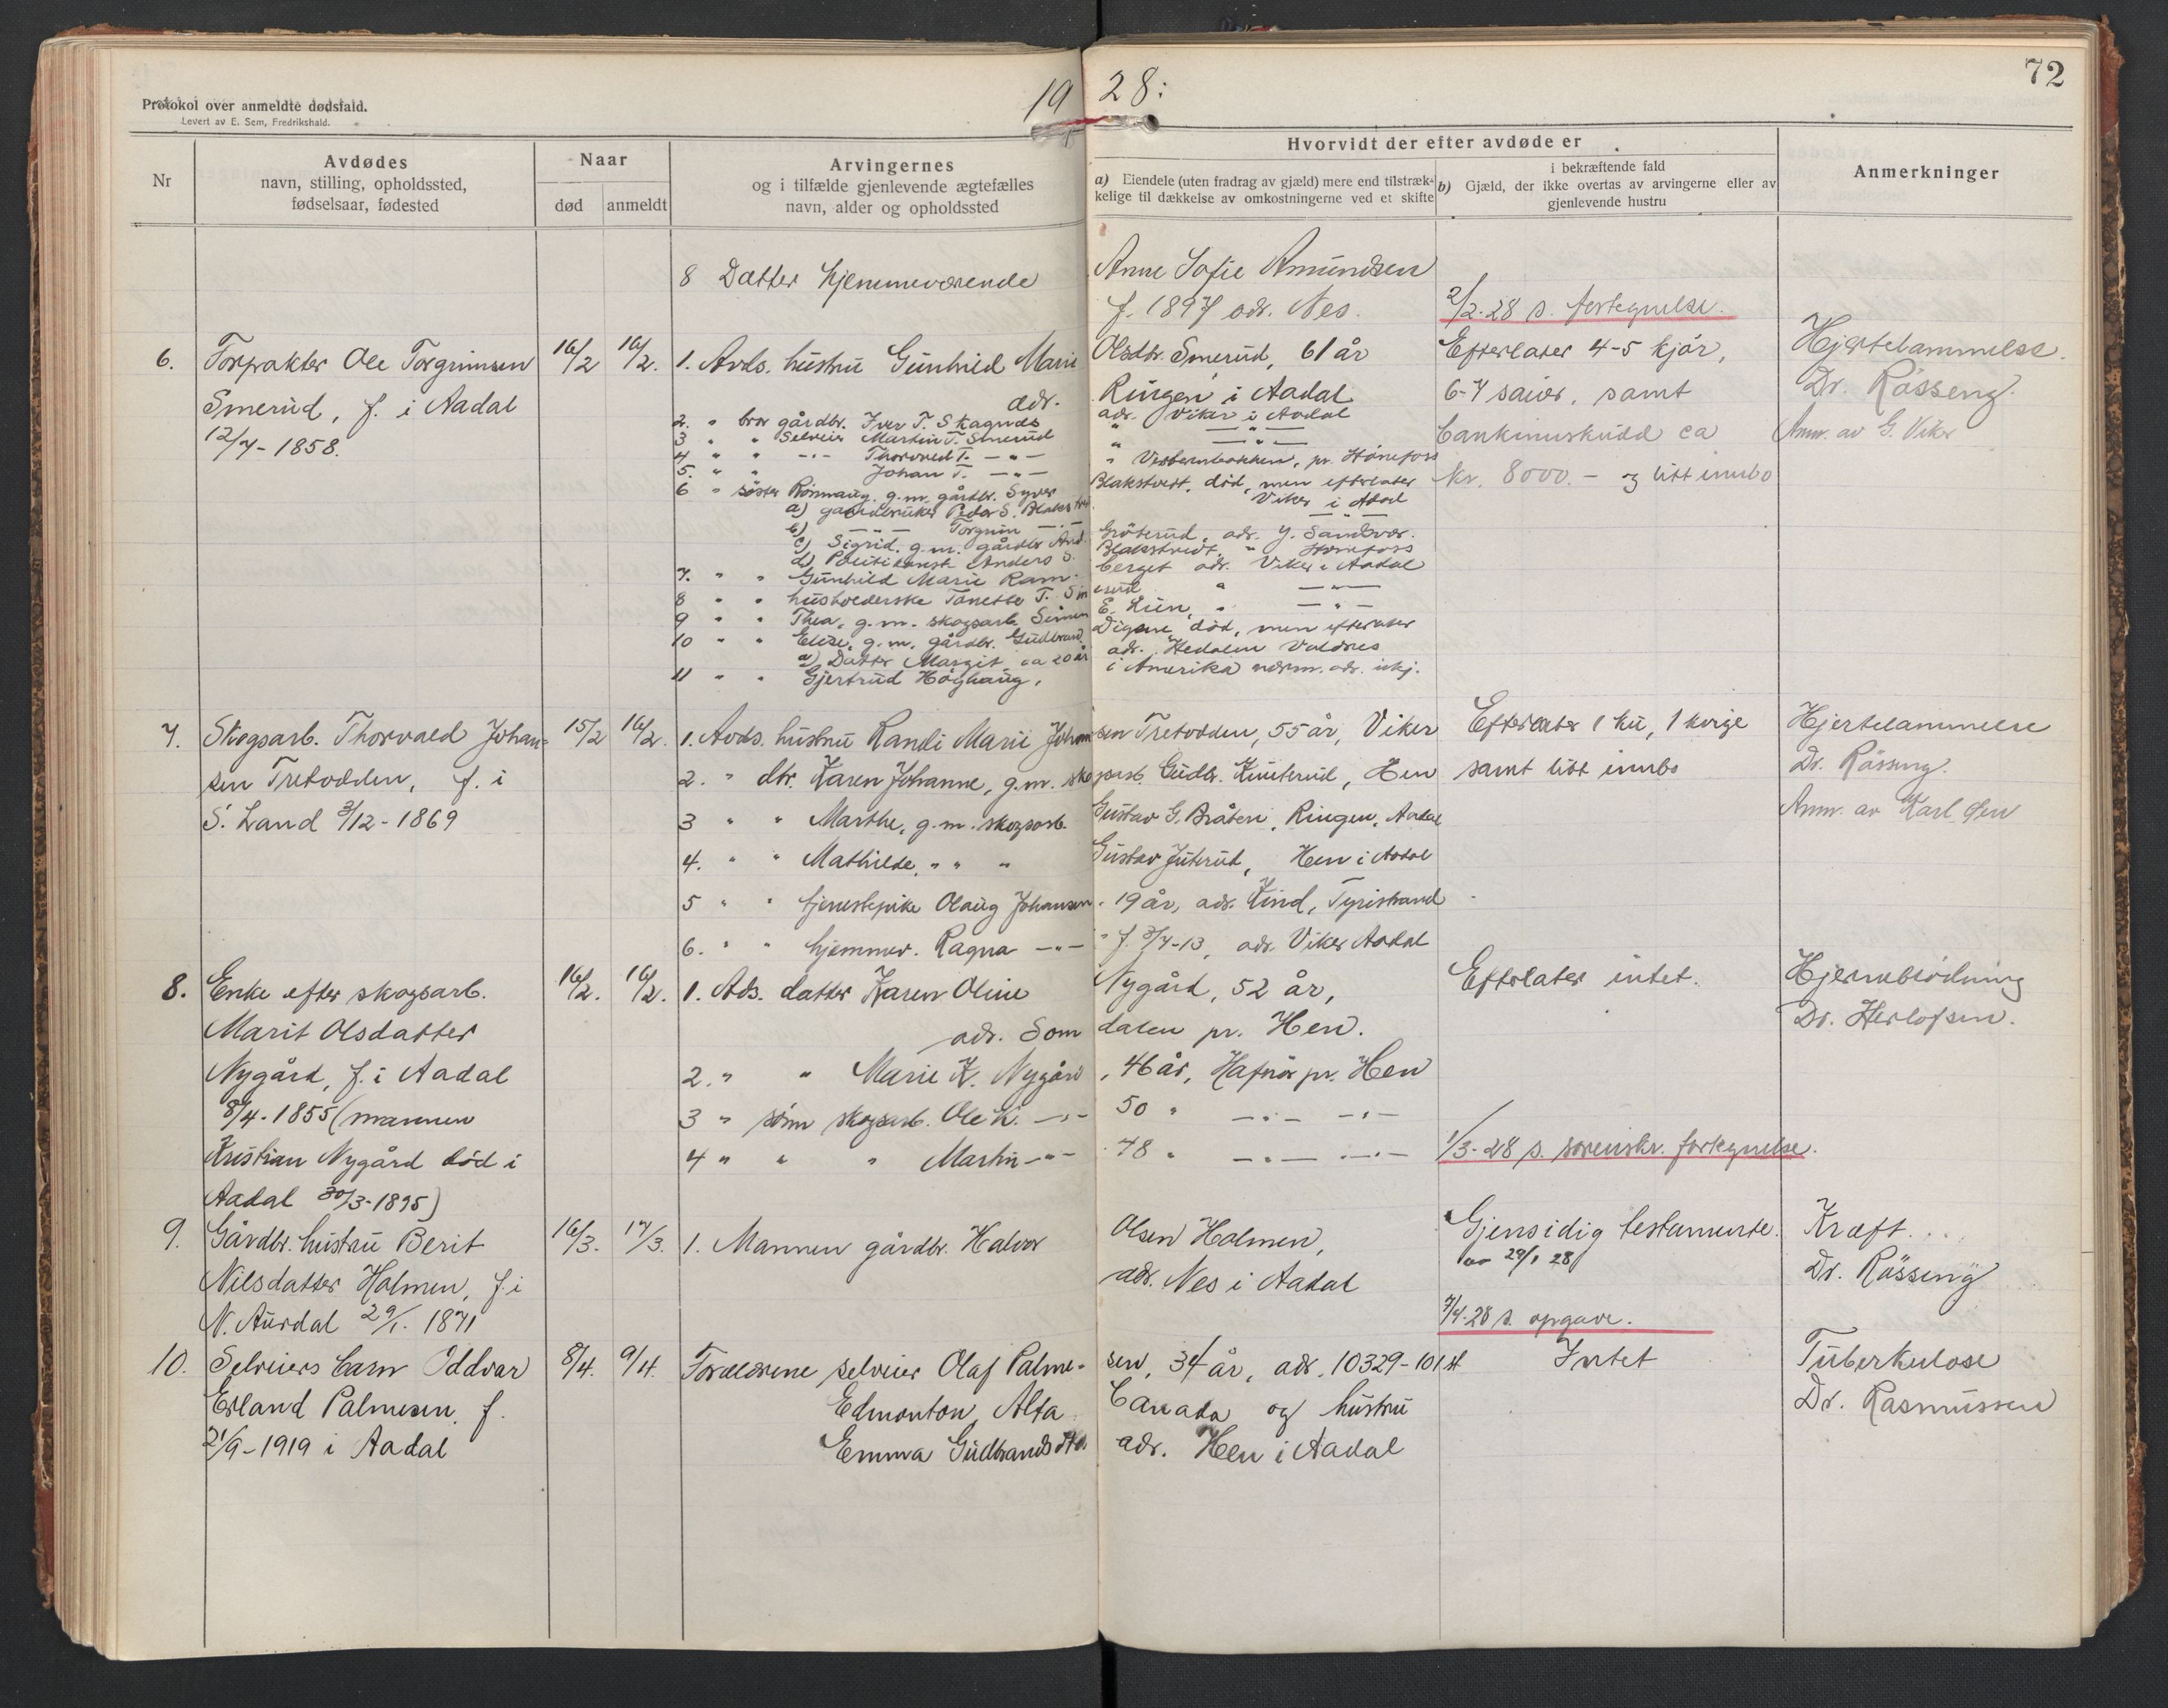 Protokol over anmeldte dødsfald.
Levert av E. Sem, Fredrikshald.
1928:
72
Nr
Avdødes
navn, stilling, opholdssted,
fødselsaar, fødested
Naar
død
anmeldt
Arvingernes
og i tilfælde gjenlevende ægtefælles
navn, alder og opholdssted
Hvorvidt der efter avdøde er
a) Eiendele (uten fradrag av gjæld) mere end tilstræk-
kelige til dækkelse av omkostningerne ved et skifte
i bekræftende fald
b) Gjæld, der ikke overtas av arvingerne eller av
gjenlevende hustru
Anmerkninger
8 Datter hjemmeværende Anne Sofie Amundsen
f. 1897 adr. Nes.
2/2-28 s. fortegnelse.
6. Torpakter Ole Torgrimsen
Smerud, f. i Aadal
12/7-1858.
16/2 16/2.
1. Avds. hustru Gunhild Marie Olsdtr. Smerud, 61 år
adr. Ringen i Aadal
2. " bror gårdbr. Iver T. Skagnæs adr. Viker i Aadal
3 " " Selveier Martin T. Smerud " —"—
4 " " —"— Thorvald T. —"—
5. " " Johan T. —"— pr. Hönefoss
6 " söster Rönnaug, g.m. gårdbr. Syver Blakstvedt, död, men efterlater
a) gaardbruker Peder S. Viker i Adal
b) —"— Torgrim —"— —"—
c) Sigrid, g.m. gårdbr. And. Gröterud, adr. Y. Sandvær.
d) Politikonst. Anders S. " Hönefoss
7. " " Gunhild Marie Ramberget adr. Viker i Aadal
8 " " husholderske Tonette T. Smerud " —"—
9 " " Thea, g.m. skogsarb. Simen E. Lien, " —"—
10 " " Elise, g.m. gårdbr. Gudbrand Digene, död, men efterlater
a) Datter Margit ca 20 år adr. Hedalen Valdres
11 " " Gjertrud Höghaug, i Amerika nærm. adr. ikj.
Efterlater 4-5 kjör,
6-7 sauer, samt
bankinnskudd ca
kr. 8000.- og litt innbo
Hjertelammelse.
Dr. Rösseng.
Anm. av G. Viker
7. Skogsarb. Thorvald Johan=
sen Tretodden, f. i
S. Land 3/12-1869
15/2 16/2.
1. Avds. hustru Randi Marie Johansen Tretodden, 55 år, Viker
2. " dtr. Karen Johanne, g.m. skogsarb. Gudbr. Knuterud, Hen
3 " " Marthe, g.m. skogsarb. Gustav G. Bråten, Ringen, Aadal
4. " " Mathilde, " " " Gustav Juterud, Hen i Aadal
5 " " tjenestepike Olaug Johansen 19 år, adr. Kind, Tyristrand
6. " " hjemmev. Ragna —"— f. 3/7-13, adr. Viker Aadal
Efterlater 1 ku, 1 kvige
samt litt innbo
Hjertelammelse
Dr. Rösseng.
Anm. av Karl
8. Enke efter skogsarb.
Marit Olsdatter
Nygård, f. i Aadal
8/4-1855 (mannen
Kristian Nygård död i
Aadal 30/3-1895)
16/2. 16/2.
1. Ads. datter Karen Oline Nygård, 52 år,
adr. Somdalen pr. Hen.
2. " " Marie K. Nygård, 46 år, Hafnör pr. Hen
3 " sönn skogsarb. Ole K. —"— 50 " —"— —"—
4 " " " Martin —"— 48 " —"— —"—
Efterlater intet.
1/3-28 s. sorenskr. fortegnelse.
Hjerneblödning
Dr. Herlofsen.
9. Gårdbr. hustru Berit
Nilsdatter Holmen, f. i
N. Aurdal 29/1. 1871
16/3. 17/3.
1. Mannen gårdbr. Halvor Olsen Holmen,
adr. Nes i Aadal
Gjensidig testamente.
av 29/1 28
7/4-28 s. opgave.
Kræft.
Dr. Rösseng
10. Selveiers barn Oddvar
Erland Palmesen, f.
21/9-1919 i Aadal
8/4. 9/4.
Forældrene selveier Olaf Palmesen, 34 år, adr. 10329-101 st
Edmonton, Alta Canada og hustru
Emma Gudbrandsdtr. adr. Hen i Aadal
Intet
Tuberkulose
Dr. Rasmussen